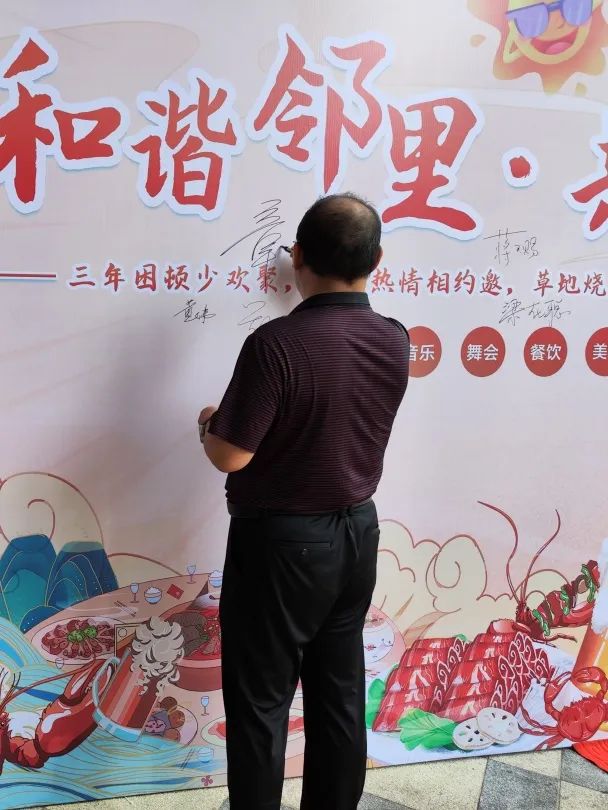 和谐邻里·
三年困顿少欢聚，热情相约邀，草地烧
音乐 舞会 餐饮 美